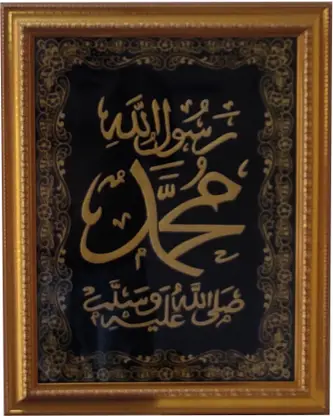 رَسُولُ اللَّهِ
مُحَمَّد
صَلَّى اللَّهُ عَلَيْهِ وَسَلَّم